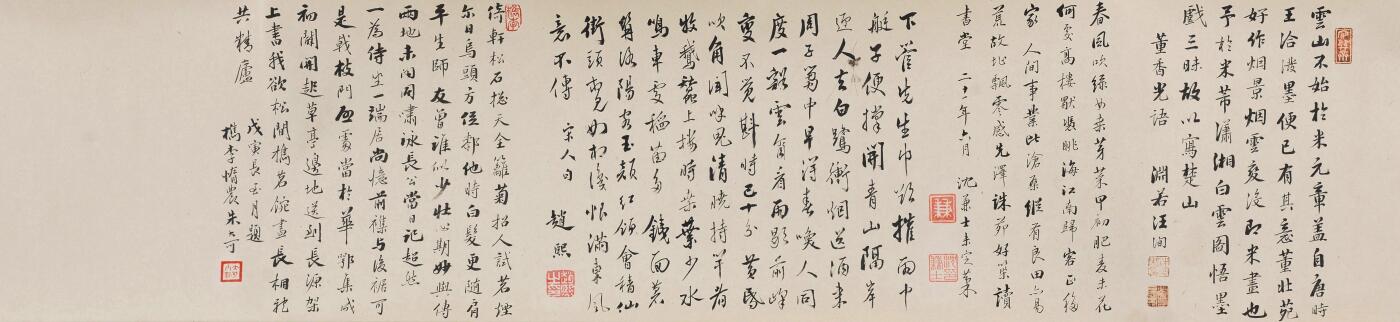 雲山不始於米元章盖自唐時
王洽潑墨便已有其意董北苑
好作烟景烟雲变没即米畫也
予於米芾瀟湘白雲圖悟墨
戲三昧故以寫楚山
董香光語 淵若汪洵
春風吹綠如柔芽菜甲初肥麦未花
何夏高樓獸愁眺海江南歸客正移
家 人間事業比滄桑維有良田
荒故址飄零感先澤誅茆好築讀
書堂 二十一年六月 沈兼士未定藁
下巖先生巾欹摧雨中
艇子便撑開青山隔岸
迎人去白鷺衝烟送酒来
周子蒭中早得春喚人同
度一谿雲貪看雨歇前峰
變不覺斟時已十分黄昏
吹角聞呼鬼清曉持竿看
牧鵝蠶上楼時桑葉少水
鳴車處稲苗多 錢面苍
髯洛陽客玉頬红領會稽仙
街頭売如相識怀滿東風
意不傳 宋人句 趙熙
倚軒松石揔天全籬菊招人試茗煙
尔日烏頭方位鄰他時白髮更隨肩
平生師友曾谁似少壮心期妙與傳
兩地未聞同嘯詠長公當日記超然
一為侍坐一端居尚憶前襟与後裾可
是戟枝門歪處當於華鄂集成
初闢開起草亭邊地送到長源架
上書我欲松間携茗椀畫長相就
共精廬
戊寅長至月題
檇李惰農朱大可